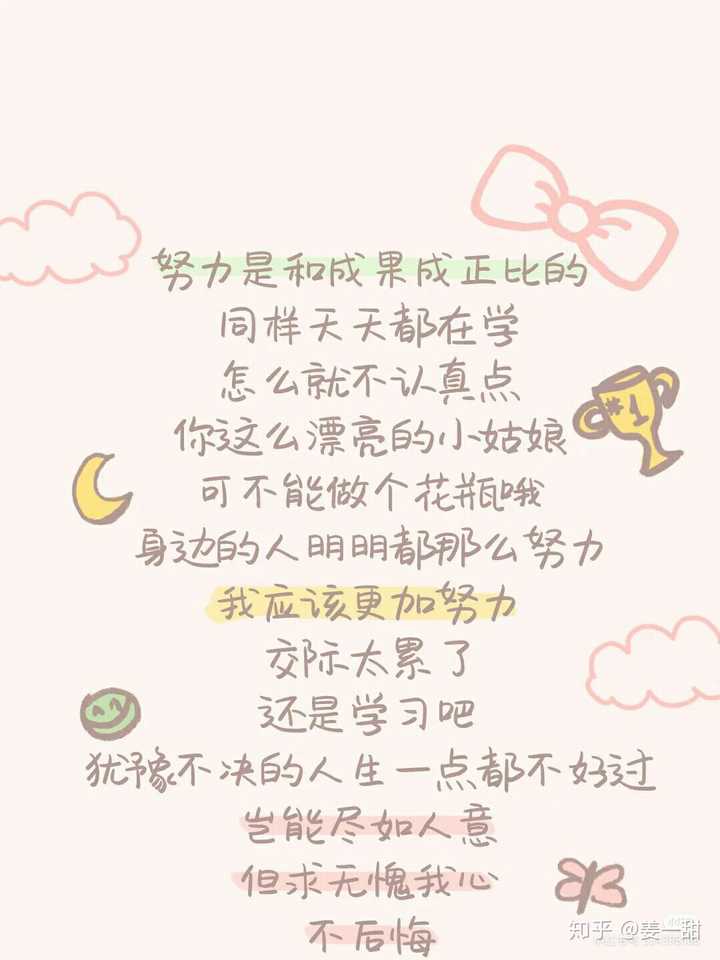 努力是和成果成正比的
同样天天都在学
怎么就不认真点
你这么漂亮的小姑娘
可不能做个花瓶哦
身边的人明明都那么努力
我应该更加努力
交际太累了
还是学习吧
犹豫不决的人生一点都不好过
岂能尽如人意
但求无愧我心
不后悔
#1
知乎 @姜一甜